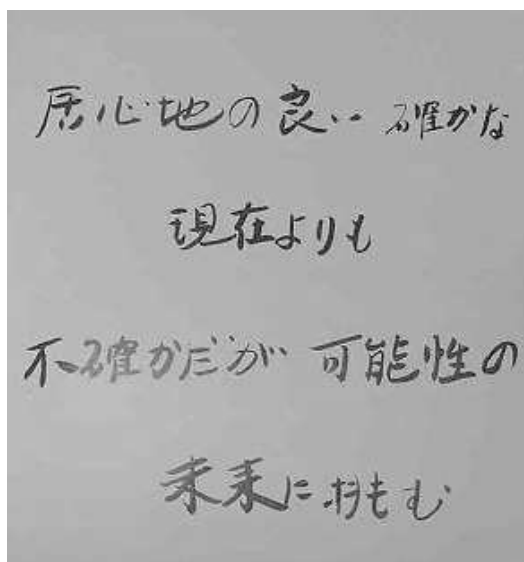 居心地の良い 確かな
現在よりも
不確かだが 可能性の
未来に おもむ